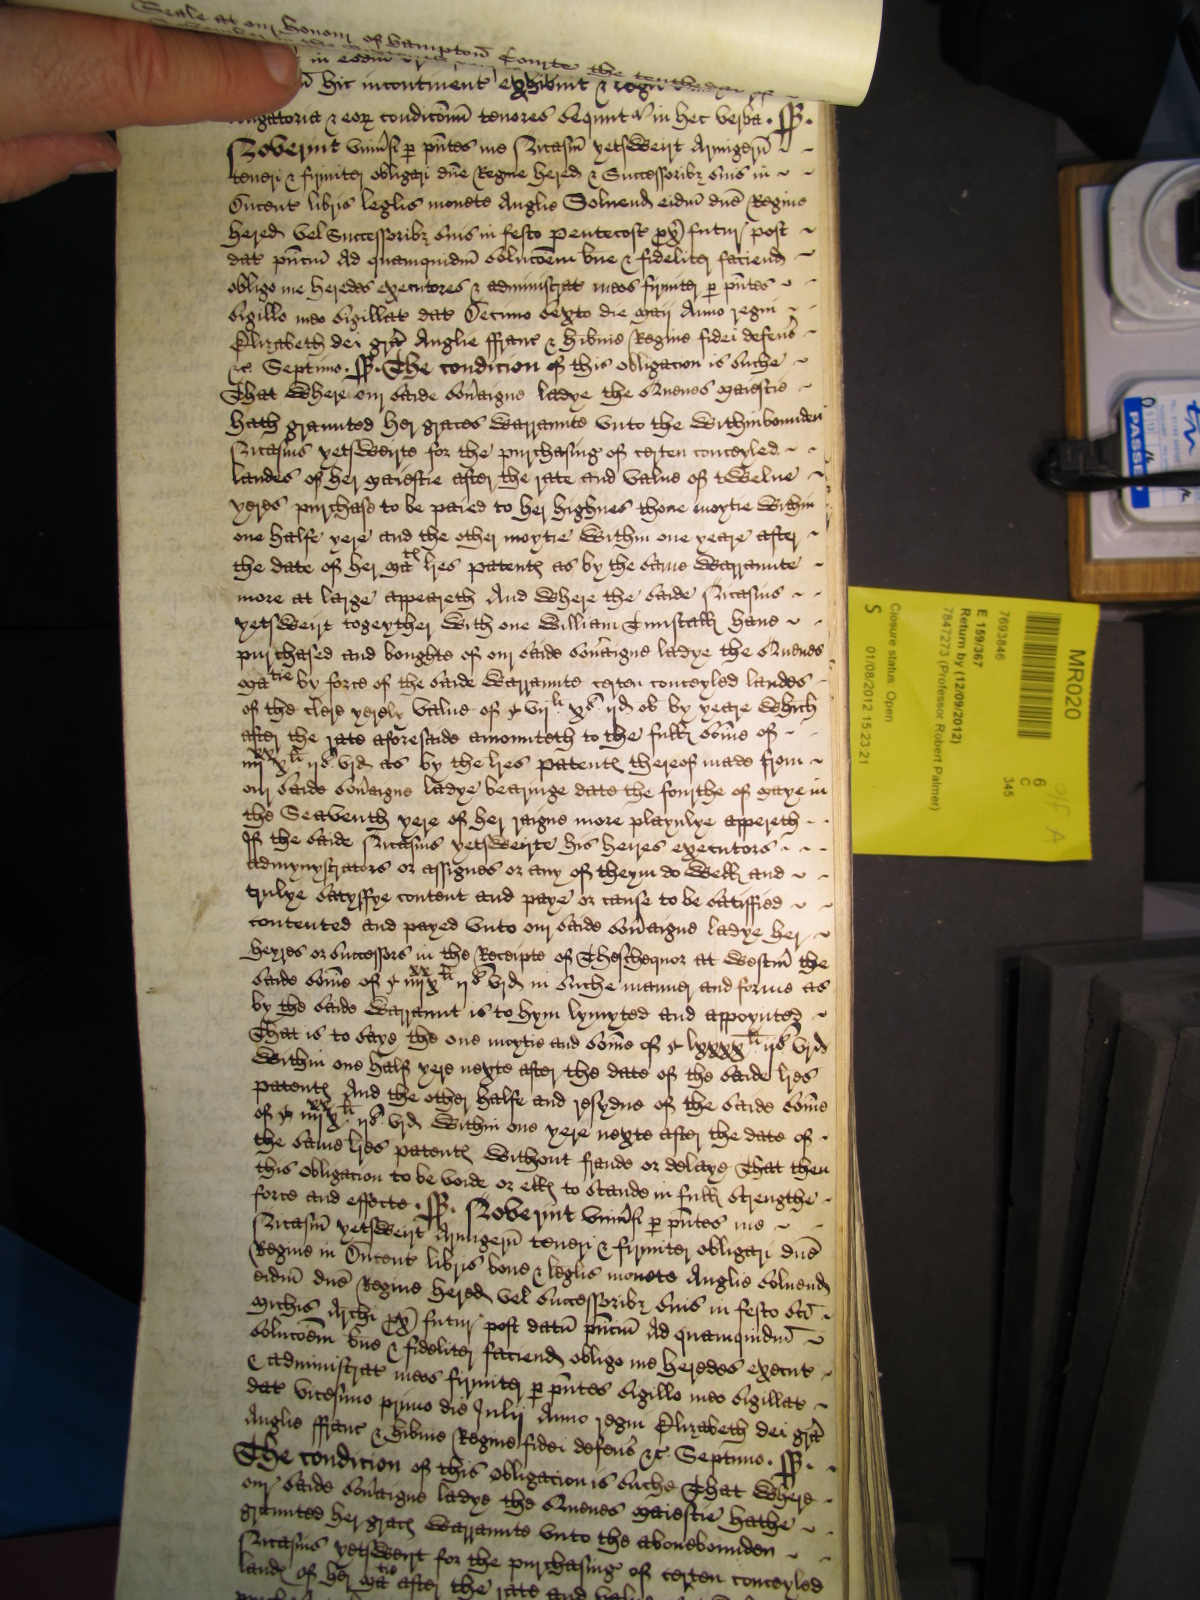 Seale at our honour of hampton Courte the tenthe day of
in eodm
hic incontinent exhibuit & 
obligatoria & eorz condicionu tenores sequnt in hec verba. 
Noverint univsi p pntes me Nicasiu yetsweirt Armigeru
teneri & firmiter obligari dne Regine hered & Successoribz suis in
Ducent libris leglis monete Anglie Solvend eidm dne Regine
hered vel Successoribz suis in festo Pentecost px futur post
dat pntiu Ad quamquidm solucoem bne & fideliter faciend
obligo me heredes executores & administrat meos firmiter p pntes
sigillo meo sigillat dat Decimo sexto die maij Anno regni
Elizabeth dei gra Anglie ffranc & hibnie Regine fidei defens
&c Septimo. The condicion of this obligation is suche
That where our saide sovaigne ladye the Quenes maiestie
hath graunted her graces warraunte unto the withinbounden
Nicasius yetsweirte for the purchasing of certen conceyled
landes of her maiestie after the rate and value of twelve
yeres purchase to be paied to her highnes thone moytie within
one halfe yere and the other moytie within one yeare after
the date of her matis lres patente as by the same warraunte
more at large appeareth And where the saide Nicasius
yetsweirt togeyther with one William Tunstall have
purchased and boughte of our saide sovaigne ladye the Quenes
matie by force of the saide warraunte certen conceyled landes
of the clere yerely value of xvijli xs ijd ob by yeare which
after the rate aforesaide amounteth to the full some of
ijs vjd as by the lres patente thereof made from
our saide sovaigne ladye bearinge date the fourthe of maye in
the Seaventh yere of her raigne more playnlye appereth
If the saide Nicasius yetsweirte his heires executors
admynystrators or assignes or any of theym do well and
trulye satysfye content and paye or cause to be satisfied
contented and payed unto our saide sovaigne ladye her
heyres or successors in the Receipte of Theschequor at westm the
saide some of ijs vjd in suche manner and forme as
by the saide warraunt is to hym lymyted and appoynted
That is to saye the one moytie and some of ijs vjd
Within one half yere nexte after the date of the saide lres
patente And the other halfe and resydue of the saide some
of ijs vjd within one yere nexte after the date of
the same lres patente without fraude or delaye That then
this obligation to be voide or elle to stande in full strengthe
force and effecte. Noverint univsi p pntes me
Nicasiu yetsweirt Armigeru teneri & firmiter obligari dne
Regine in Ducent libris bone & leglis monete Anglie solvend
eidm dne Regine hered vel successoribz suis in festo sci
michis Archi px futur post datu pntiu Ad quamquidm
solucoem bne & fideliter faciend obligo me heredes execut
& administrat meos firmiter p pntes sigillo meo sigillat
dat vicesimo primo die Julij Anno regni Elizabeth dei gra
Anglie ffranc & hibnie Regine fidei defens &c Septimo.
The condicion of this obligacion is suche That where
our saide sovaigne ladye the Quenes maiestie hathe
graunted her grace warraunte unto the abovebounden
Nicasius yetsweirt for the purchasing of certen conceyled
lande of her matie after the rate and value
MR020
7693846
6
C
345
E 159/367
Return by (12/09/2012)
7847273 (Professor Robert Palmer)
Closure status: Open
S 01/08/2012 15:23:21
PASSED